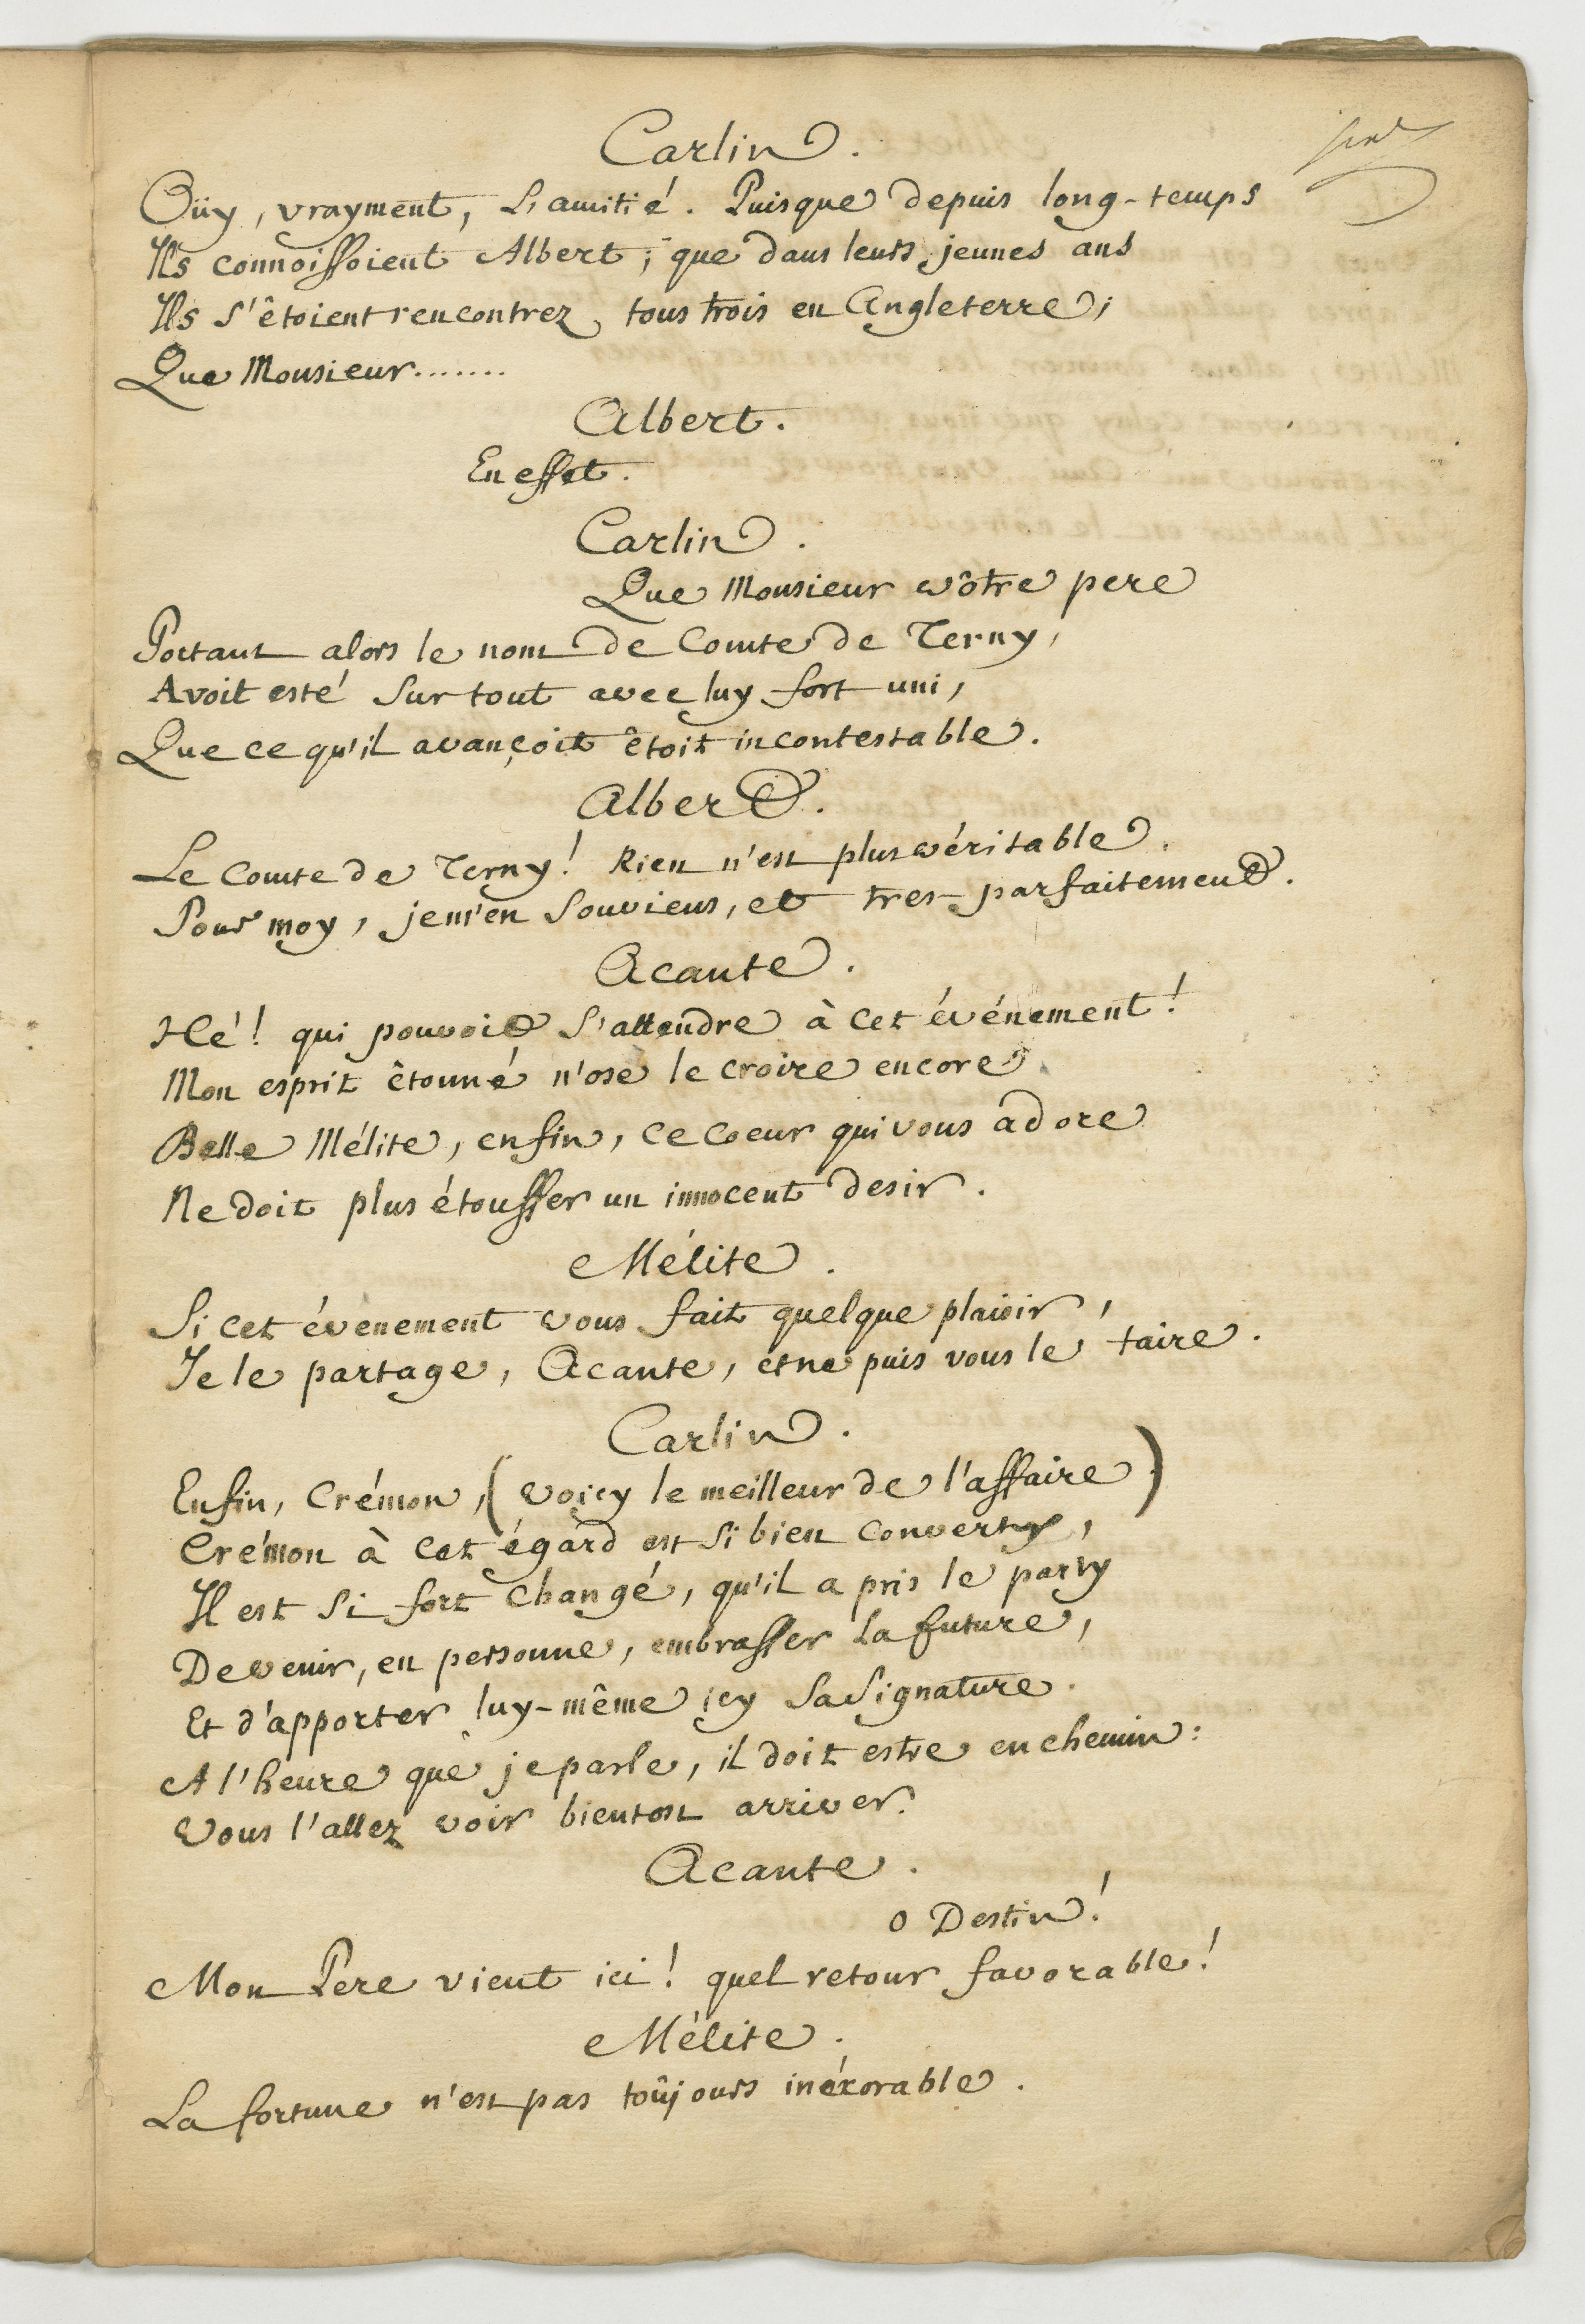 Carlin.
Oüy, vrayment, L'amitié. Puisque depuis long-temps
Ils connoissoient Albert; que dans leurs jeunes ans
Ils s'êtoient rencontrez tous trois en Angleterre;
Que Monsieur.......
Albert.
En effet.
Carlin.
Que Monsieur vôtre pere
Portant alors le nom de Comte de Terny,
Avoit esté sur tout avec luy fort uni,
Que ce qu'il avançoit êtoit incontestable.
Albert.
Le Comte de Terny! Rien n'est plus véritable.
Pour moy, je m'en souviens, et tres-parfaitement.
Acante.
Hé! qui pouvoit s'attendre à cet événement!
Mon esprit êtonné n'ose le croire encore.
Belle Mélite, enfin, ce coeur qui vous adore
Ne doit plus étouffer un innocent desir.
Mélite.
Si cet évenement vous fait quelque plaisir,
Je le partage, Acante, et ne puis vous le taire.
Carlin.
Enfin, Crémon, (voicy le meilleur de l'affaire)
Crémon à cet égard est si bien converty,
Il est si fort changé, qu'il a pris le party
De venir, en personne, embrasser la future,
Et d'apporter luy-même icy sa signature.
A l'heure que je parle, il doit estre en chemin:
Vous l'allez voir bientost arriver.
Acante.
O Destin!
Mon Pere vient ici! quel retour favorable!
Mélite.
La fortune n'est pas toûjours inéxorable.